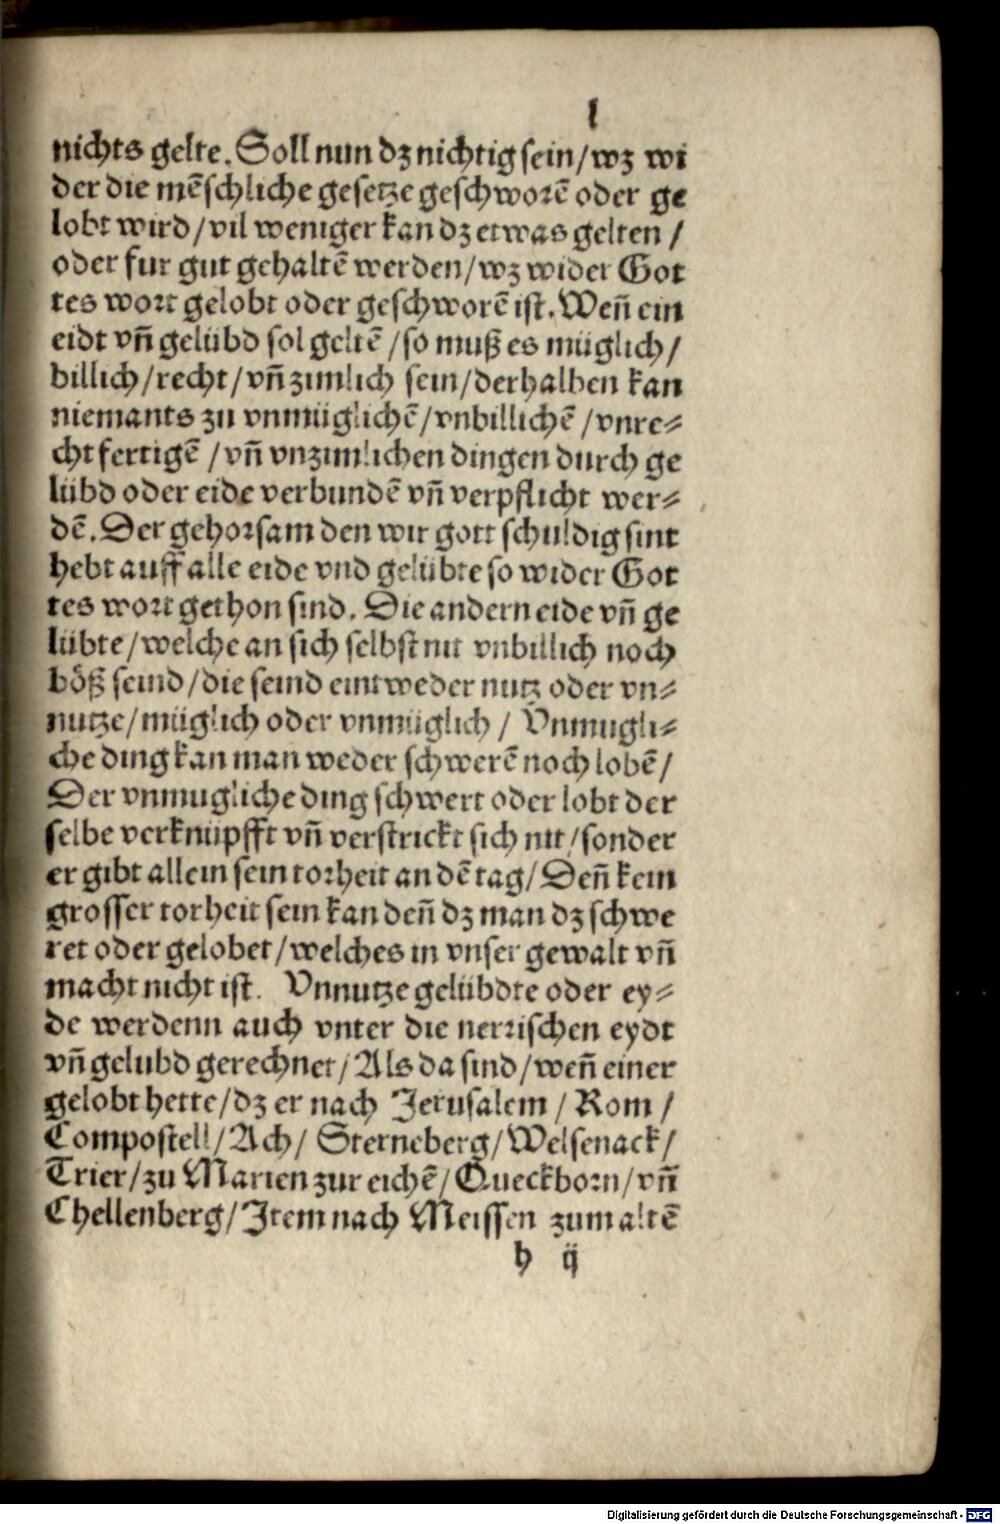 l
nichts gelte. Soll nun dz nichtig sein/wz wi
der die mēschliche gesetze geschworē oder ge
lobt wird/vil weniger kan dz etwas gelten /
oder fur gut gehaltē werden/wz wider Got
tes wort gelobt oder geschworē ist. Weñ ein
eidt vñ gelübd sol geltē /so muß es müglich/
billich/recht/vñ zimlich sein/derhalben kan
niemants zu vnmüglichē/vnbillichē/vnre⸗
cht fertigē /vñ vnzimlichen dingen durch ge
lübd oder eide verbundē vñ verpflicht wer⸗
dē. Der gehorsam den wir gott schuldig sint
hebt auff alle eide vnd gelübte so wider Got
tes wort gethon sind. Die andern eide vñ ge
lübte/welche an sich selbst nit vnbillich noch
böß seind/die seind eintweder nutz oder vn⸗
nutze/müglich oder vnmüglich / Vnmugli⸗
che ding kan man weder schwerē noch lobē/
Der vnmugliche ding schwert oder lobt der
selbe verknüpfft vñ verstrickt sich nit/sonder
er gibt allein sein torheit an dē tag/Deñ kein
grosser torheit sein kan deñ dz man dz schwe
ret oder gelobet/welches in vnser gewalt vñ
macht nicht ist. Vnnutze gelübdte oder ey⸗
de werdenn auch vnter die nerrischen eydt
vñ gelubd gerechnet/Als da sind/weñ einer
gelobt hette/dz er nach Jerusalem / Rom /
Compostell/Ach/ Sterneberg/Welsenack/
Trier/zu Marien zur eichē/Queckborn/vñ
Chellenberg/Item nach Meissen zum altē
h ij
Digitalisierung gefördert durch die Deutsche Forschungsgemeinschaft - DFG